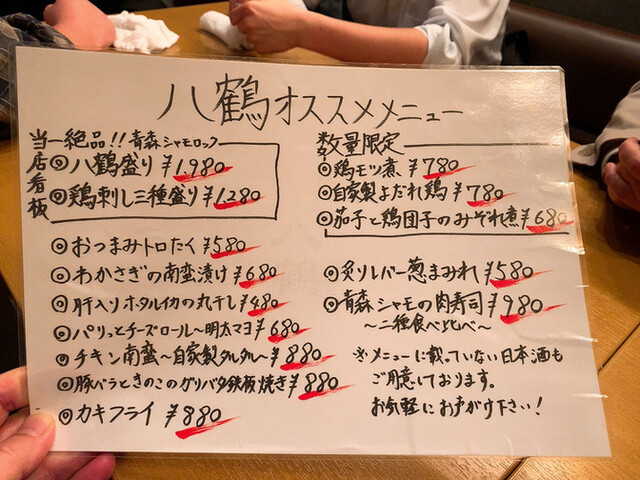 八鶴オススメメニュー
当店看板
一絶品!!青森シャモロック
◎八鶴盛り ¥1,980
◎鶏刺し三種盛り ¥1,280
◎おつまみトロたく ¥580
◎わかさぎの南蛮漬け ¥680
◎肝入りホタルイカの丸干し ¥480
◎パリっとチーズロール〜明太マヨ ¥680
◎チキン南蛮〜自家製タルタル〜 ¥880
◎豚バラときのこのガリバタ鉄板焼き ¥880
◎カキフライ ¥880
数量限定
◎鶏モツ煮 ¥780
◎自家製よだれ鶏 ¥780
◎茄子と鶏団子のみぞれ煮 ¥680
◎炙りレバー葱まみれ ¥580
◎青森シャモの肉寿司 ¥980
〜二種食べ比べ〜
※メニューに載っていない日本酒も
ご用意しております。
お気軽にお声がけ下さい!